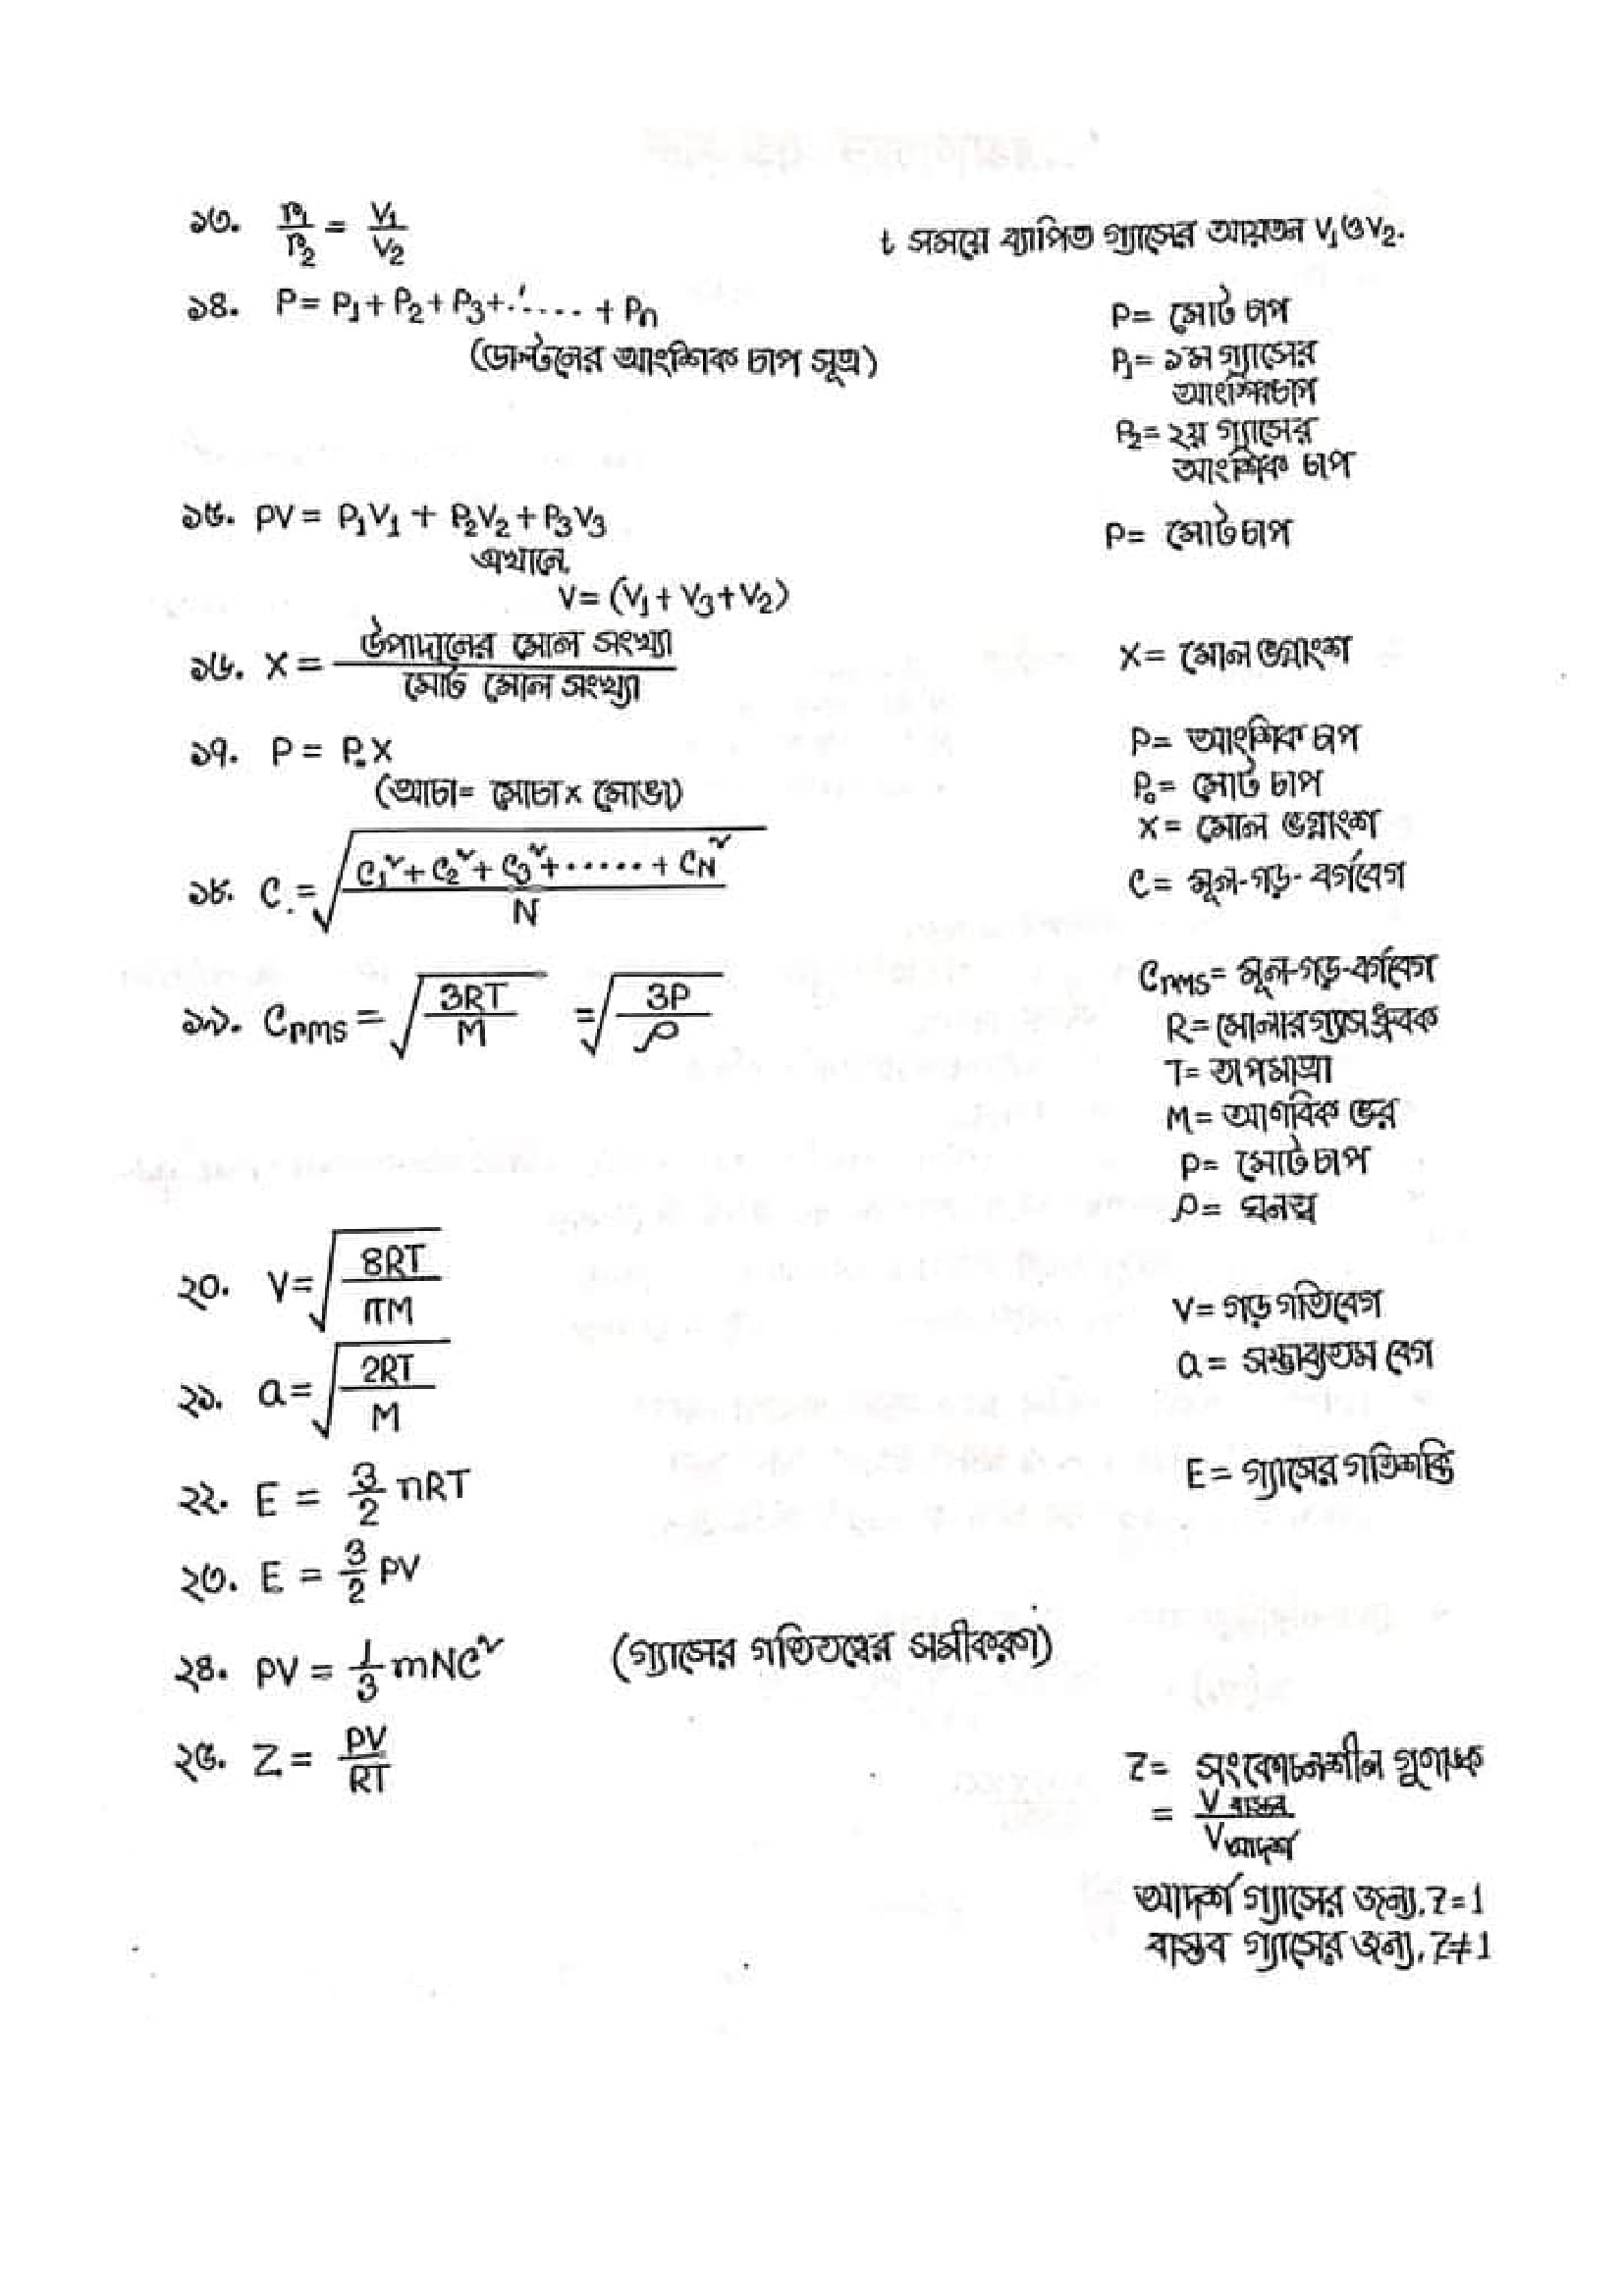 ১৩. r₁/r₂ = V₁/V₂
t সময়ে ব্যাপিত গ্যাসের আয়তন V₁ ও V₂.
১৪. P = P₁ + P₂ + P₃ + ...... + Pn
(ডাল্টনের আংশিক চাপ সূত্র)
P = মোট চাপ
P₁ = ১ম গ্যাসের
আংশিক চাপ
P₂ = ২য় গ্যাসের
আংশিক চাপ
১৫. PV = P₁V₁ + P₂V₂ + P₃V₃
এখানে,
V = (V₁ + V₃ + V₂)
P = মোট চাপ
১৬. X = উপাদানের মোল সংখ্যা / মোট মোল সংখ্যা
X = মোল ভগ্নাংশ
১৭. P = P₀X
(আচা = মোচা × মোভা)
P = আংশিক চাপ
P₀ = মোট চাপ
X = মোল ভগ্নাংশ
১৮. C = √((C₁² + C₂² + C₃² + ...... + CN²) / N)
C = মূল-গড়-বর্গবেগ
১৯. Crms = √(3RT/M) = √(3P/ρ)
Crms = মূল-গড়-বর্গবেগ
R = মোলার গ্যাস ধ্রুবক
T = তাপমাত্রা
M = আণবিক ভর
P = মোট চাপ
ρ = ঘনত্ব
২০. V = √(8RT/πM)
V = গড় গতিবেগ
২১. a = √(2RT/M)
a = সম্ভাব্যতম বেগ
২২. E = 3/2 nRT
E = গ্যাসের গতিশক্তি
২৩. E = 3/2 PV
২৪. PV = 1/3 mNC² (গ্যাসের গতিতত্ত্বের সমীকরণ)
২৫. Z = PV/RT
Z = সংকোচনশীল গুণাঙ্ক
= V বাস্তব / V আদর্শ
আদর্শ গ্যাসের জন্য, Z = 1
বাস্তব গ্যাসের জন্য, Z ≠ 1